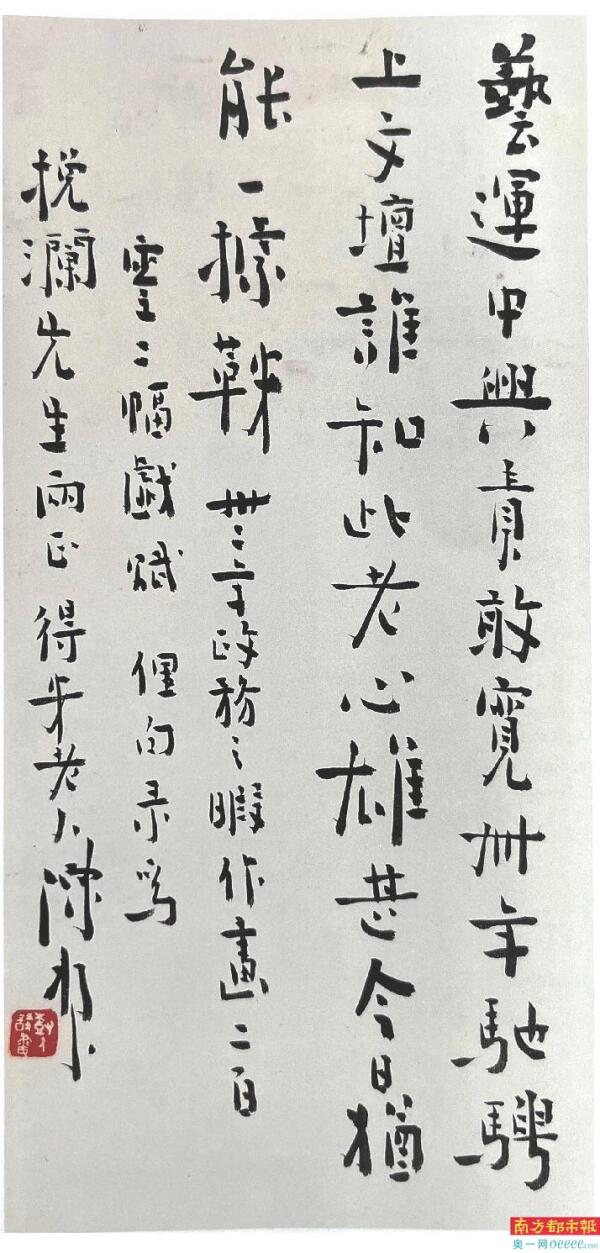 藝運中興責敢寬卅年馳騁
上文壇誰知此老心雄甚今日猶
能一據鞍 卅三年政務之暇作畫二百
零二幅戲賦 俚句录爲
挽瀾先生兩正 得老人陳
南方都市報
奥一网oeeee.com